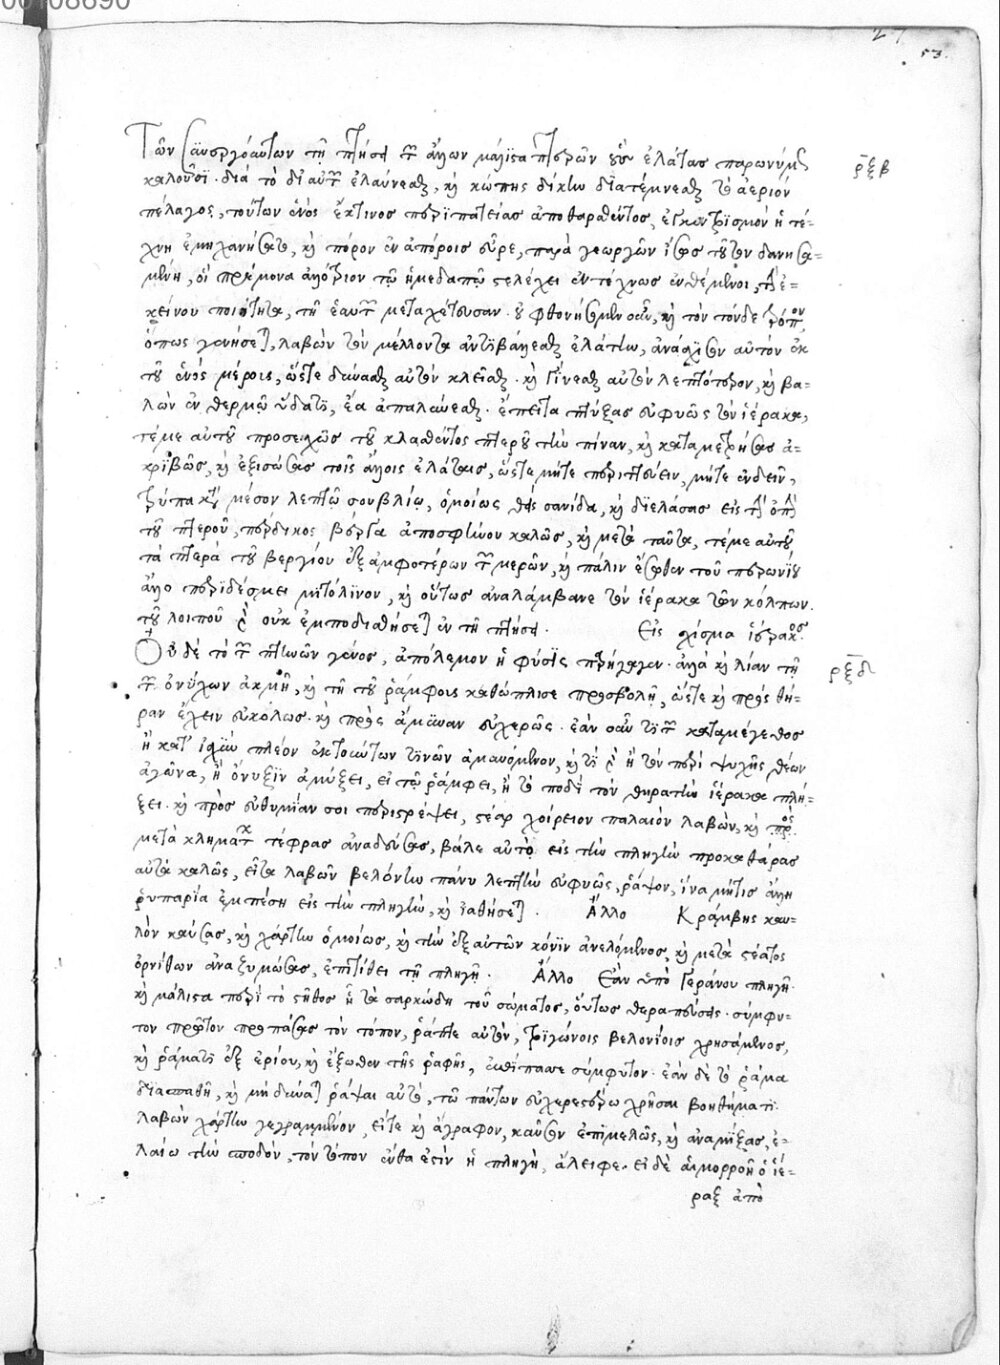 00108690
27
53.
Τῶν συνεργούντων τῇ πτήσει τῶν ἄλλων μάλιστα πτερῶν οὓς ἐλάτας παρωνύμως ρξβ
καλοῦσι· διὰ τὸ δι' αὐτῶν ἐλαύνεσθαι, καὶ κώπης δίκην διατέμνεσθαι τὸ ἀέριον
πέλαγος, τούτων ἑνὸς ἔκτινος περιπετείας ἀποθαραθέντος, ἐγκεντρισμὸν ἡ τέ-
χνη ἐμηχανήσατο, καὶ πόρον ἐν ἀπόροις εὗρε, παρὰ γεωργῶν ἴσως τοῦτον δανεισα-
μένη, οἳ πρέμνα ἀλλότριον τῷ ἡμεδαπῷ στελέχει ἐντέχνως ἐνθέμενοι, τὴν ἐ-
κείνου ποιότητα, τῇ ἑαυτῶν μεταχέτευσαν. οὐ φθονήσωμεν οὖν, καὶ τὸν τόνδε τρόπον
ὅπως γενήσεται, λαβὼν τὸν μέλλοντα ἀντιβάλλεσθαι ἐλάτην, ἀνάσχισον αὐτὸν ἐκ
τοῦ ἑνὸς μέρους, ὥστε δύνασθαι αὐτὸν κλεῖσθαι. καὶ γίνεσθαι αὐτὸν λεπτότερον, καὶ βα-
λὼν ἐν θερμῷ ὕδατι, ἔα ἁπαλύνεσθαι. ἔπειτα πτύξας εὐφυῶς τὸν ἱέρακα,
τέμε αὐτοῦ προσεχῶς τοῦ κλασθέντος πτεροῦ τὴν πίναν, καὶ καταμετρήσας ἀ-
κριβῶς, καὶ ἐξισώσας τοῖς ἄλλοις ἐλάταις, ὥστε μήτε περιττεύειν, μήτε ἐνδεῖν,
τρύπα κατὰ μέσον λεπτῷ σουβλίῳ, ὁμοίως θὲς σανίδα, καὶ διελάσας εἰς τὴν ὀπὴν
τοῦ πτεροῦ, πέρδικος βεργία ἀποσφίνου καλῶς, καὶ μετὰ ταῦτα, τέμε αὐτοῦ
τὰ πτερὰ τοῦ βεργίου ἐξ ἀμφοτέρων τῶν μερῶν, καὶ πάλιν ἔσωθεν τοῦ περωνίου
ἄλλο περιδέσμει μιτόλινον, καὶ οὕτως ἀναλάμβανε τὸν ἱέρακα τῶν κόλπων.
τοῦ λοιποῦ γὰρ οὐκ ἐμποδισθήσεται ἐν τῇ πτήσει. Εἰς σχίσμα ἱέρακος
Οὐδὲ τὸ τῶν πτηνῶν γένος, ἀπόλεμον ἡ φύσις παρήγαγεν. ἀλλὰ καὶ λίαν τῇ ρξδ
τῶν ὀνύχων ἀκμῇ, καὶ τῇ τοῦ ῥάμφους καθώπλισε προσβολῇ, ὥστε καὶ πρὸς θή-
ραν ἔχειν εὐκόλως. καὶ πρὸς ἄμυναν εὐχερῶς. ἐὰν οὖν τι τῶν κατὰ μέγεθος
ἢ κατ' ἰσχὺν πλέον ἐκ τοιούτων τινῶν ἀμυνόμενον, καὶ τι γὰρ ἢ τὸν περὶ ψυχῆς θέων
ἀγῶνα, ἢ ὄνυξιν ἀμύξει, εἰ τῷ ῥάμφει, ἢ τῷ ποδὶ τὸν θηρατὴν ἱέρακα πλή-
ξει. καὶ πρὸς εὐθυμίαν σοι περιστρέψει, στέαρ χοίρειον παλαιὸν λαβὼν, καὶ πρὸς
μετὰ κληματ τέφρας ἀναδεύσας, βάλε αὐτὸ εἰς τὴν πληγὴν προκαθάρας
αὐτὰ καλῶς, εἶτα λαβὼν βελόνην πάνυ λεπτὴν εὐφυῶς, ῥάψον, ἵνα μήτις ἄλλη
ῥυπαρία ἐμπέσῃ εἰς τὴν πληγὴν, καὶ ἰαθήσεται. Ἄλλο Κράμβης καυ-
λὸν καύσας, καὶ χάρτην ὁμοίως, καὶ τὴν ἐξ αὐτῶν κόνιν ἀνελόμενος, καὶ μετὰ στέατος
ὀρνίθων ἀναζυμώσας, ἐπιτίθει τῇ πληγῇ. Ἄλλο Ἐὰν ὑπὸ Γεράνου πληγῇ.
καὶ μάλιστα περὶ τὸ στῆθος ἢ τὰ σαρκώδη τοῦ σώματος, οὕτως θεραπεύσεις. σύμφυ-
τον πρῶτον προπάσας τὸν τόπον, ῥάπτε αὐτὸν, τριγώνοις βελονίοις χρησάμενος,
καὶ ῥάματι ἐξ ἐρίου, καὶ ἔξωθεν τῆς ῥαφῆς, ἐπίπασσε σύμφυτον. ἐὰν δὲ τὸ ῥάμα
διασπασθῇ, καὶ μὴ δύναται ῥάψαι αὐτὸ, τῷ πάντων εὐχερεστέρῳ χρῆσαι βοηθήματι.
λαβὼν χάρτην γεγραμμένον, εἴτε καὶ ἄγραφον, καῦσον ἐπιμελῶς, καὶ ἀναμίξας, ἐ-
λαίῳ τὴν σποδὸν, τὸν τόπον ἔνθα ἐστὶν ἡ πληγὴ, ἄλειφε. εἰ δὲ αἱμορροῇ ὁ ἱέ-
ραξ ἀπὸ